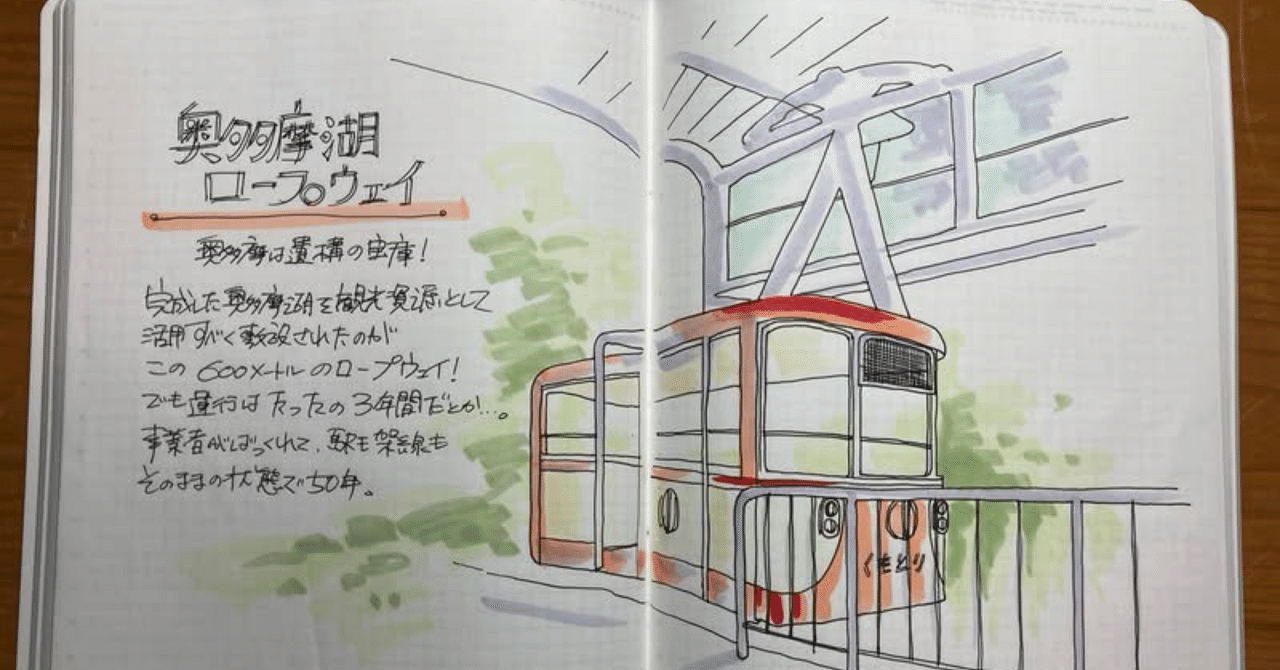 奥多摩湖
ロープウェイ
奥多摩は遺構の宝庫!
完成した奥多摩湖を観光資源として
活用すべく敷設されたのが
この600メートルのロープウェイ!
でも運行はたったの3年間だとか…。
事業者がばっくれて、駅も架線も
そのままの状態で50年。
くもとり